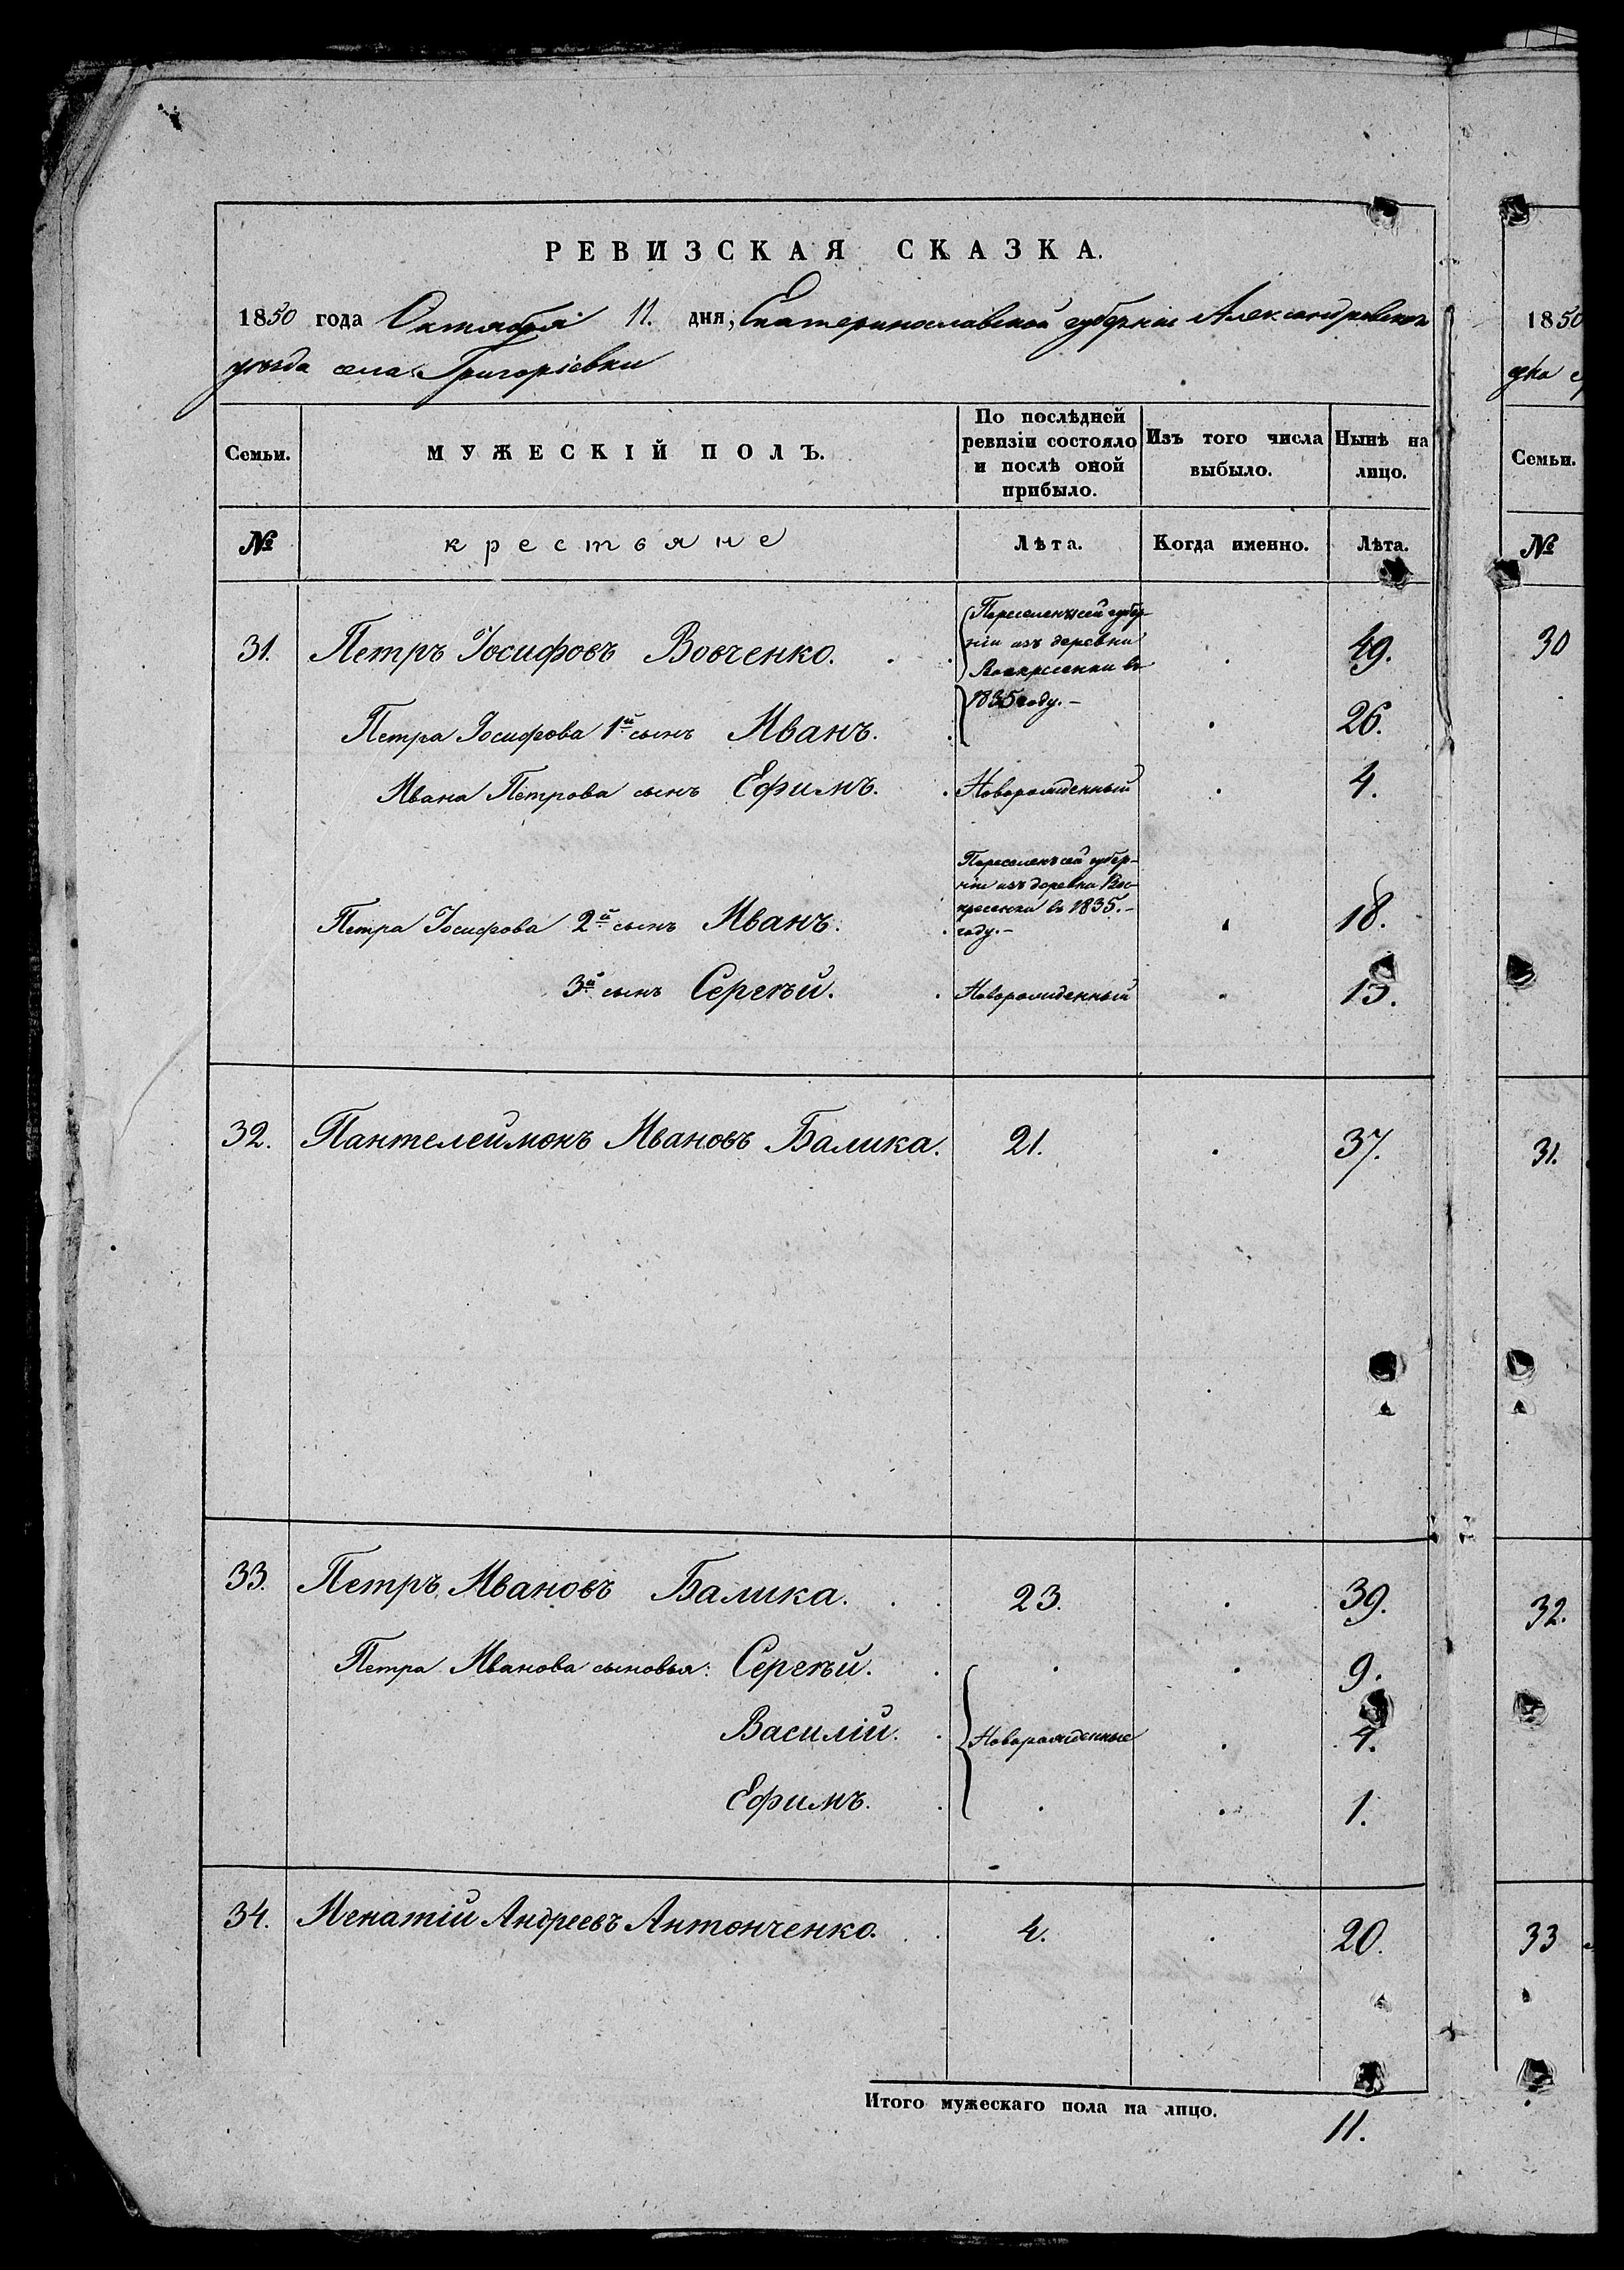 РЕВИЗСКАЯ СКАЗКА.
1850 года Октября 11. дня, Екатеринославской губерніи Александровскаго
уѣзда села Григоріевки
Семьи.
МУЖЕСКІЙ ПОЛЪ.
По послѣдней
ревизіи состояло
и послѣ оной
прибыло.
Изъ того числа
выбыло.
Нынѣ на
лицо.
№
крестьяне
Лѣта.
Когда именно.
Лѣта.
31. Петръ Іосифовъ Вовченко. 49.
Переселенъ сей губер-
ніи изъ деревни
Воскресенки въ
1835 году.
Петра Іосифова 1й сынъ Иванъ. 26.
Ивана Петрова сынъ Ефимъ. Новорожденный 4.
Переселенъ сей губер-
ніи изъ деревни Вос-
кресенки въ 1835.
году.
Петра Іосифова 2й сынъ Иванъ. 18.
3й сынъ Сергѣй. Новорожденный 15.
32. Пантелеймонъ Ивановъ Балика. 21. 37.
33. Петръ Ивановъ Балика. 23. 39.
Петра Иванова сыновья: Сергѣй. 9.
Василій. Новорожденные 4.
Ефимъ. 1.
34. Игнатій Андреевъ Антонченко. 4. 20.
Итого мужескаго пола на лицо.
11.
1850
Семьи.
№
30
31.
32.
33